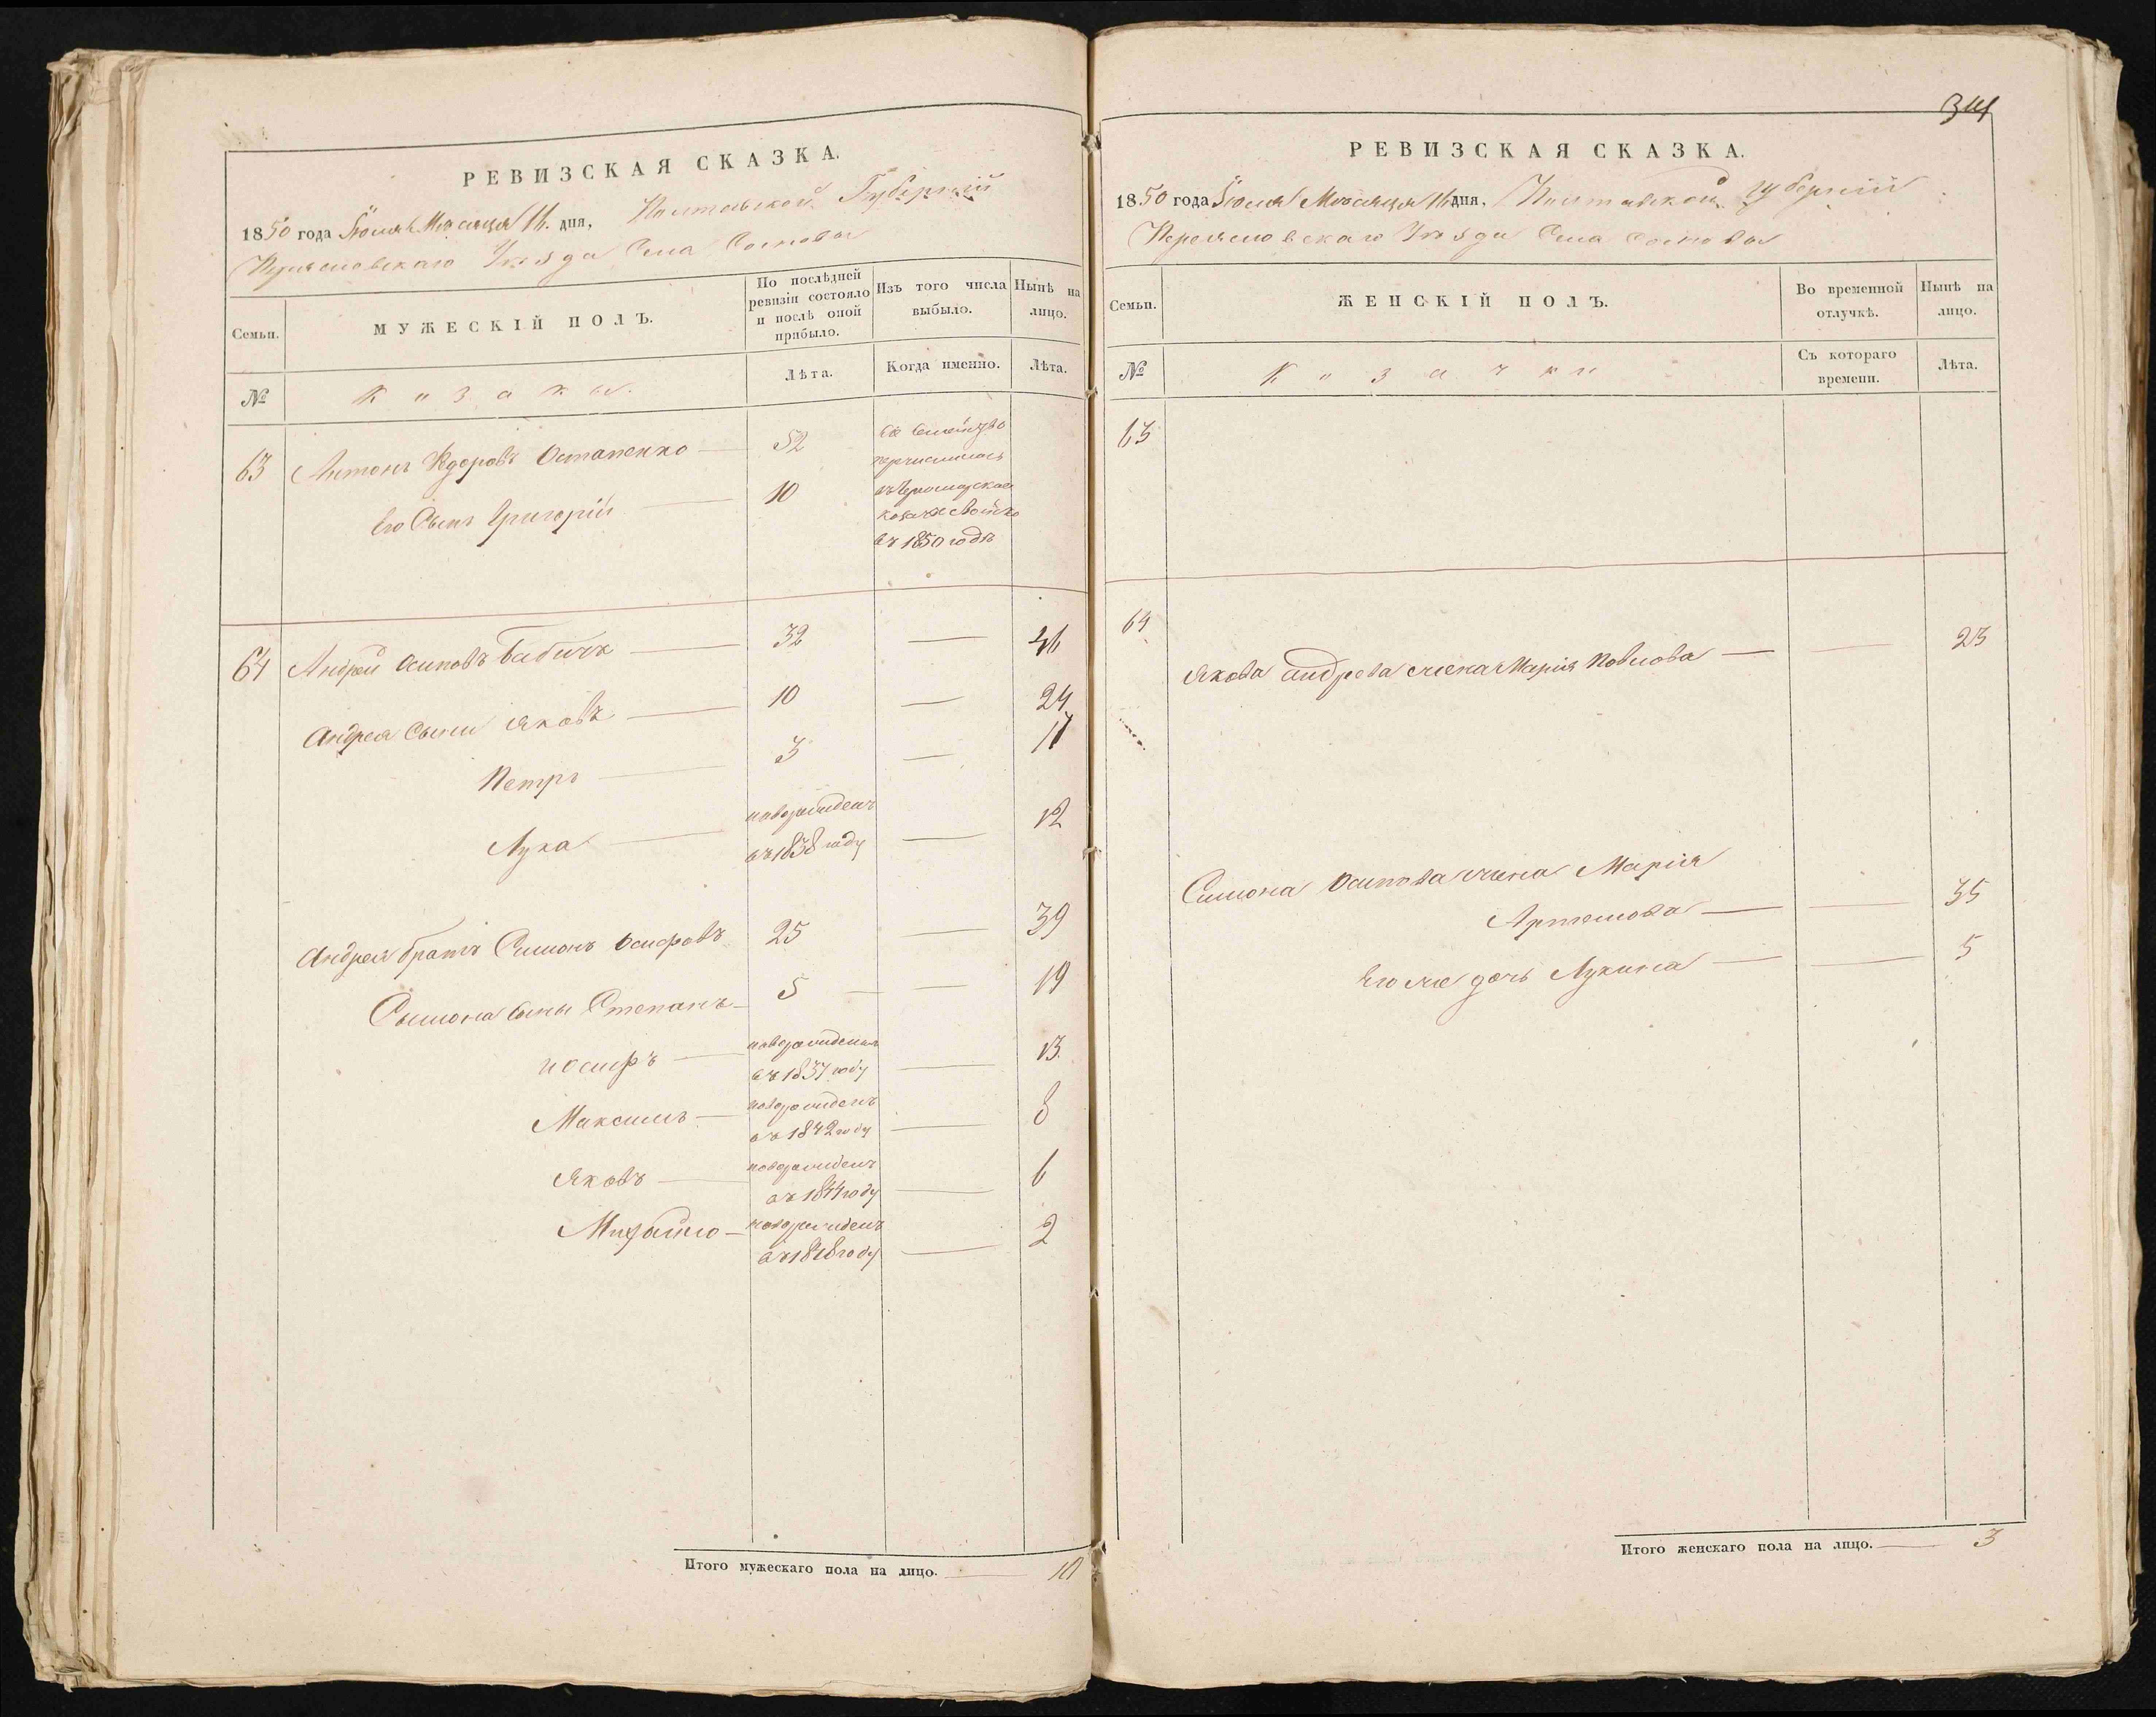 РЕВИЗСКАЯ СКАЗКА.
1850 года Іюля Мѣсяца 16. дня, Полтавской Губерніи
Переяславскаго Уѣзда Села Сосновы
Семьи.
МУЖЕСКІЙ ПОЛЪ.
По послѣдней ревизіи состояло и послѣ оной прибыло.
Изъ того числа выбыло.
Нынѣ на лицо.
№
Козаки.
Лѣта.
Когда именно.
Лѣта.
63 Антонъ Ѳдоровъ Остапенко 52
Его Сынъ Григорій 10
Сіе Семейство
перчислилось
въ Черноморское
козачее Войско
въ 1850 годѣ
64 Андрей Осиповъ Бабичъ 32 — 46
Андрея Сыни Яковъ 10 — 24
Петръ 3 — 17
Лука новорожденъ
въ 1838 году — 12
Андрея братъ Симонъ Осифовъ 25 — 39
Сымона Сыны Степанъ 5 — 19
Иосифъ новорожденъ
въ 1837 году — 13
Максимъ новорожденъ
въ 1842 году — 8
Яковъ новорожденъ
въ 1844 году — 6
Михайло новорожденъ
въ 1848 году — 2
Итого мужескаго пола на лицо. 10
РЕВИЗСКАЯ СКАЗКА.
1850 года Іюля Мѣсяца 16 дня, Полтавской губерніи
Переяславскаго Уѣзда Села Сосновы
Семьи.
ЖЕНСКІЙ ПОЛЪ.
Во временной отлучкѣ.
Нынѣ на лицо.
№
Козачки
Съ котораго времени.
Лѣта.
63
64
Якова Андреева жена Марія Повлова — 23
Симона Осипова жена Марія
Артемова — 35
Его же дочь Лукина — 5
Итого женскаго пола на лицо. 3